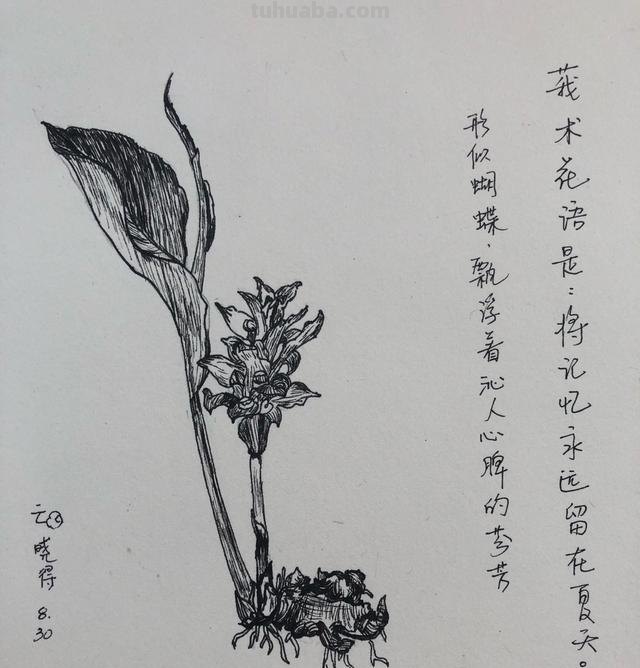 tuhuaba.com
莪术花语是：将记忆永远留在夏天。
形似蝴蝶、飘浮着沁人心脾的芬芳
晓得
8.
30